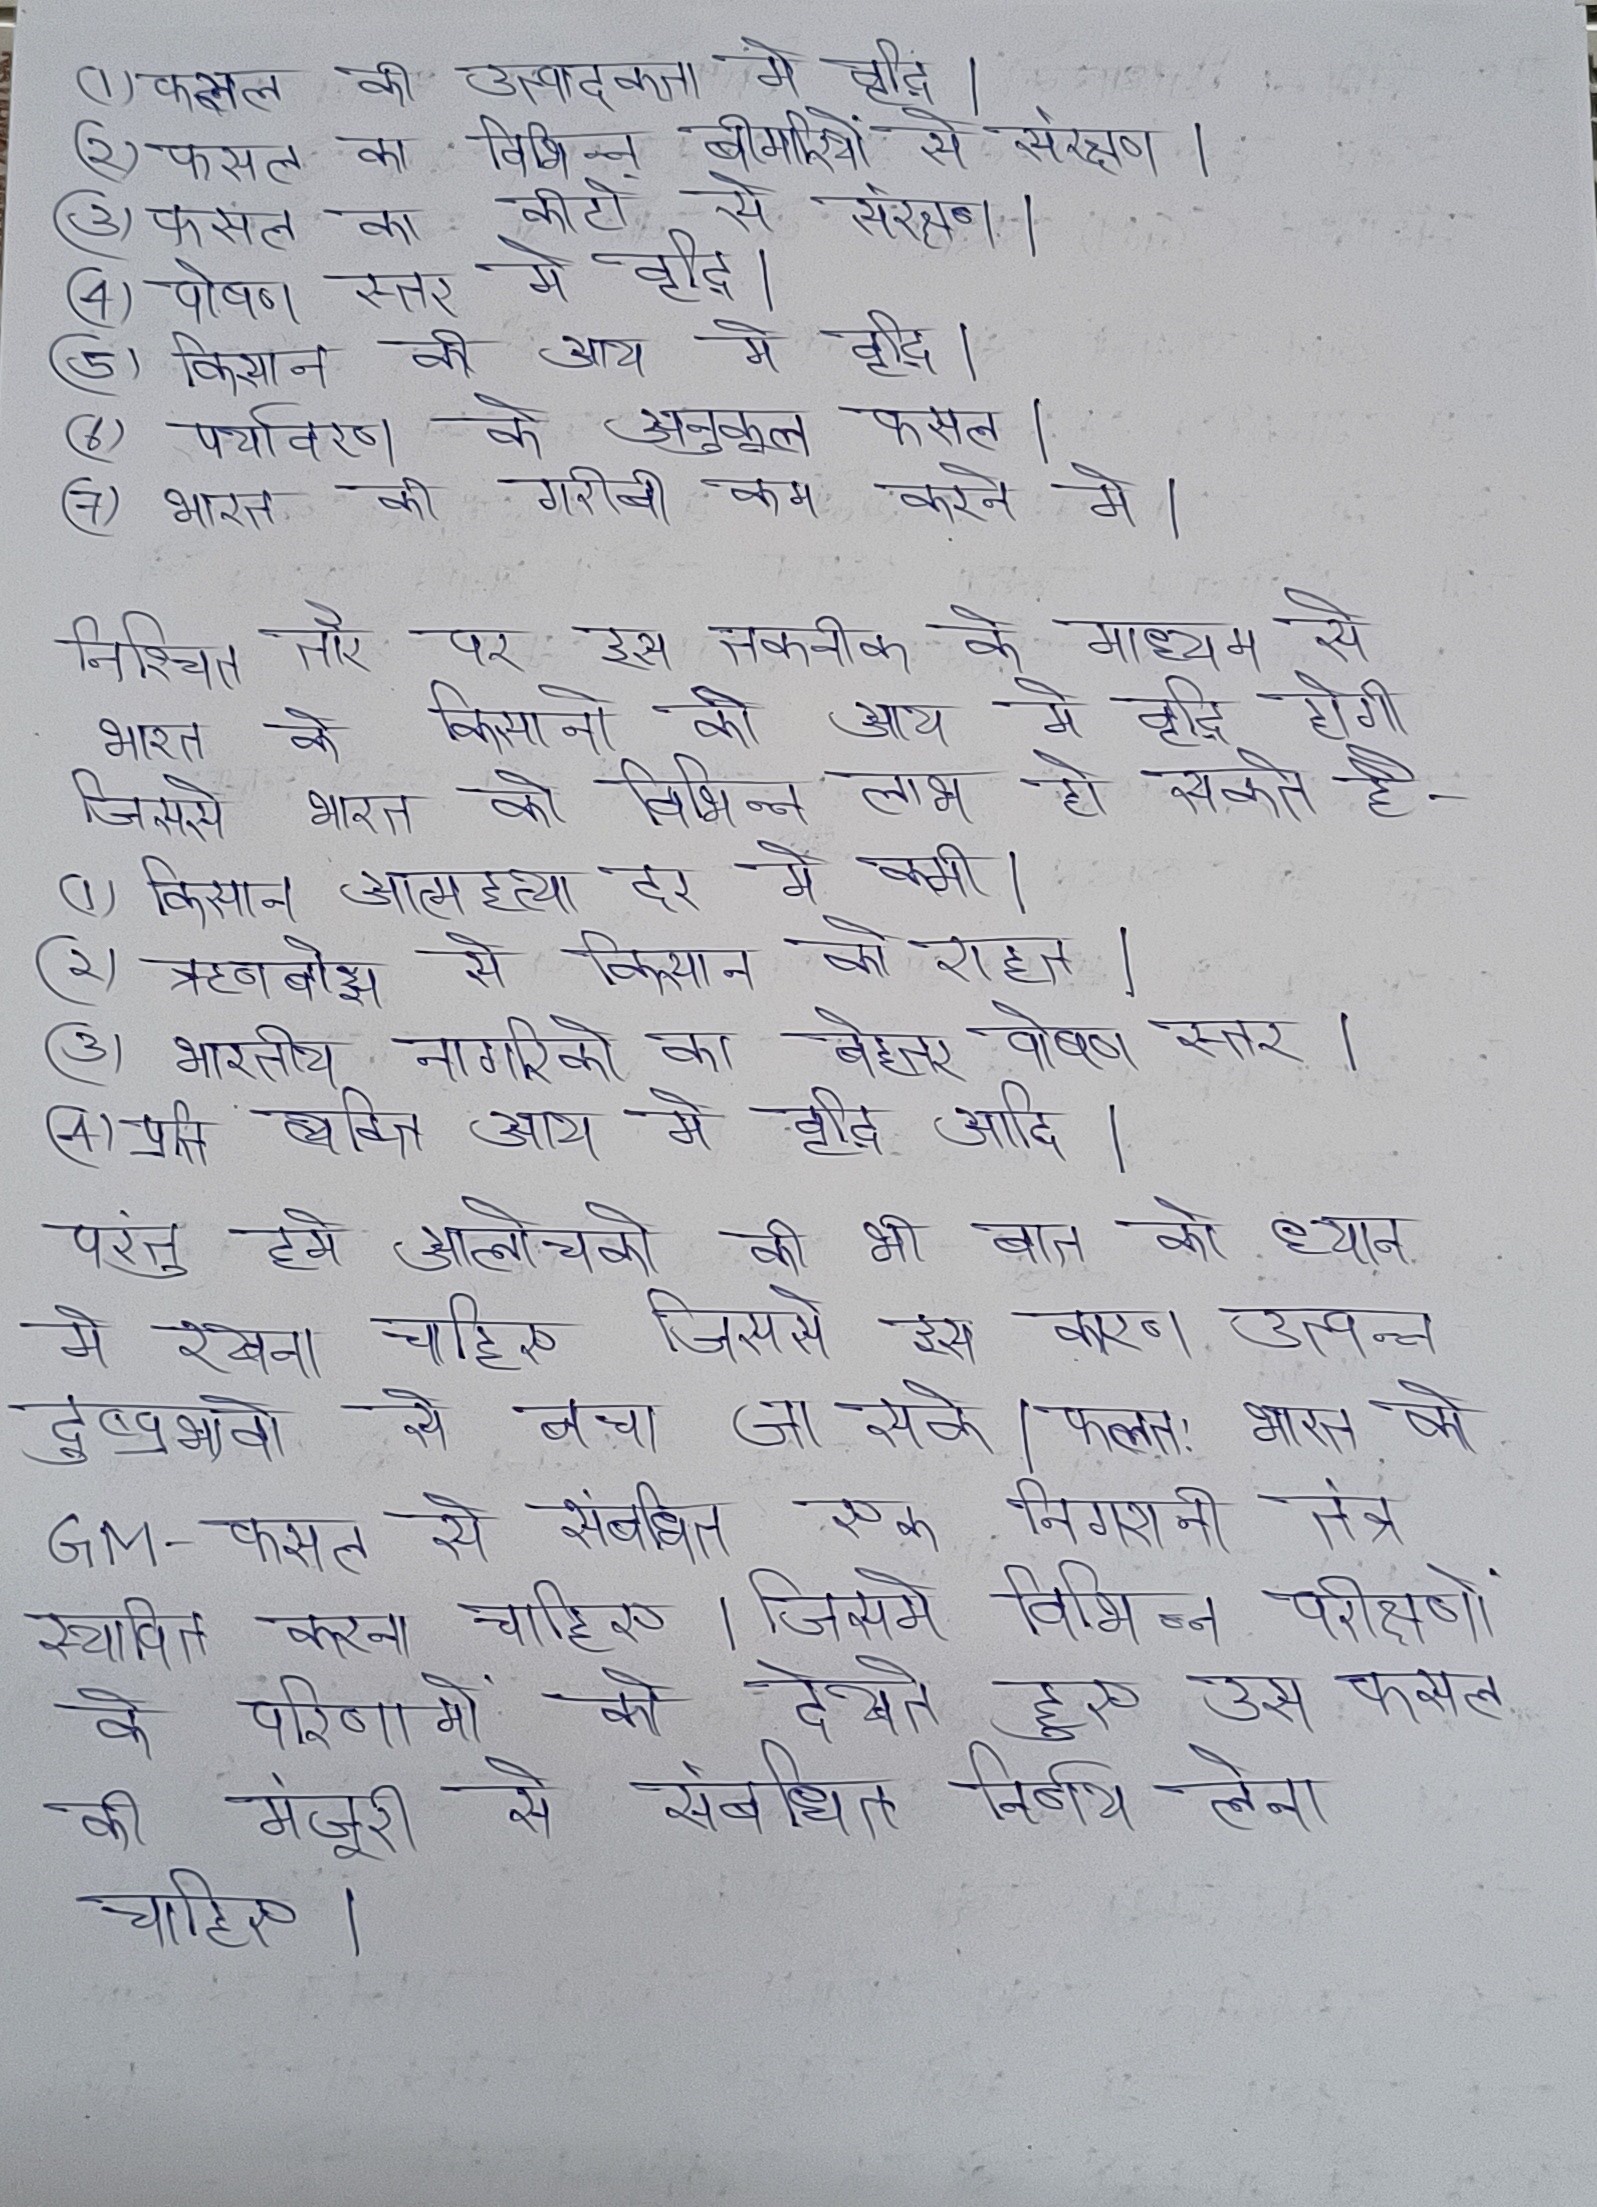 (1) फसल की उत्पादकता मे वृद्दि |
(2) फसल का विभिन्न बीमारियों से संरक्षण |
(3) फसल का कीटो से संरक्षण |
(4) पोषण स्तर मे वृद्दि |
(5) किसान की आय मे वृद्दि |
(6) पर्यावरण के अनुकूल फसल |
(7) भारत की गरीबी कम करने मे |
निश्चित तौर पर इस तकनीक के माध्यम से
भारत के किसानो की आय मे वृद्दि होगी
जिससे भारत को विभिन्न लाभ हो सकते है -
(1) किसान आत्महत्या दर मे कमी |
(2) ऋणबोझ से किसान को राहत |
(3) भारतीय नागरिको का बेहतर पोषण स्तर |
(4) प्रति व्यक्ति आय मे वृद्दि आदि |
परंतु हमे आलोचको की भी बात को ध्यान
मे रखना चाहिए जिससे इस कारण उत्पन्न
दुष्प्रभावो से बचा जा सके | फलतः भारत को
GM - फसल से संबंधित एक निगरानी तंत्र
स्थापित करना चाहिए | जिसमे विभिन्न परीक्षणों
के परिणामों को देखते हुए उस फसल
की मंजूरी से संबंधित निर्णय लेना
चाहिए |